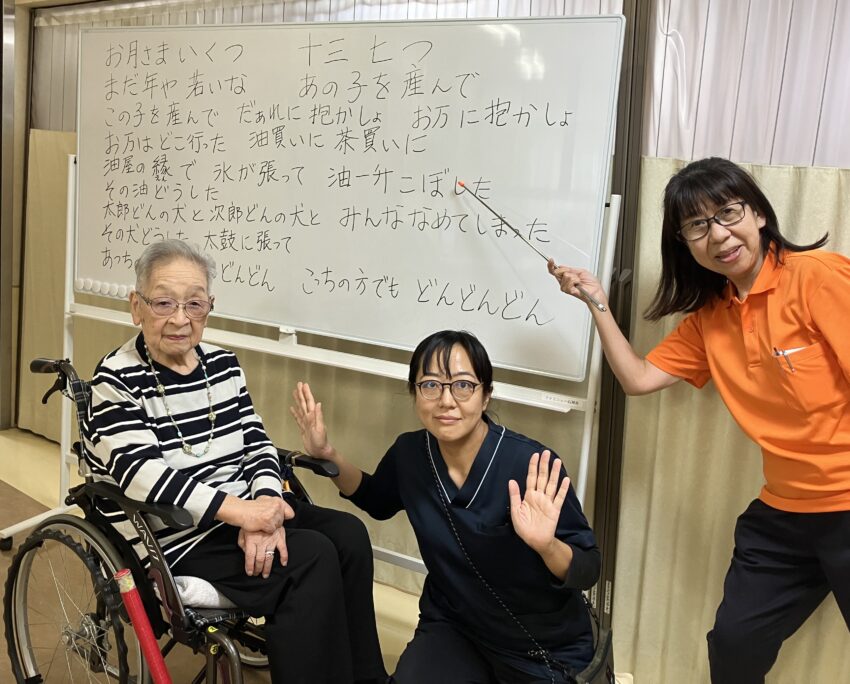 お月さまいくつ 十三 七つ
まだ年や 若いな あの子を 産んで
この子を産んで だぁれに 抱かしょ お万 に 抱かしょ
お万はどこ行った 油買いに 茶買いに
油屋の 縁で 氷が張って 油一升こぼした
その油どうした
太郎どんの犬と次郎どんの犬と みんななめてしまった
その犬どうした 太鼓に張って
あっち どんどん こっちの方でも どんどんどん